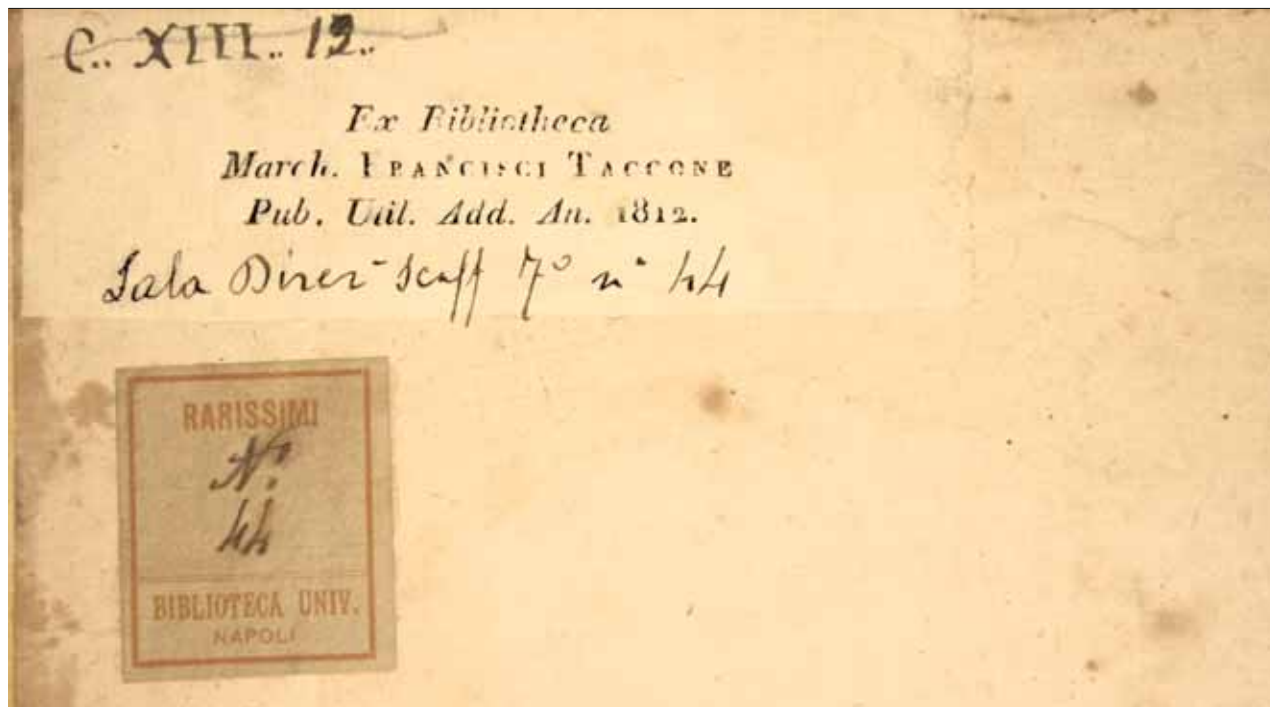 C.. XIII.. 12..
Ex Bibliotheca
March. FRANCISCI TACCONE
Pub. Util. Add. An. 1812.
Sala Direz Scaff 7º nº 44
RARISSIMI
Nº
44
BIBLIOTECA UNIV.
NAPOLI